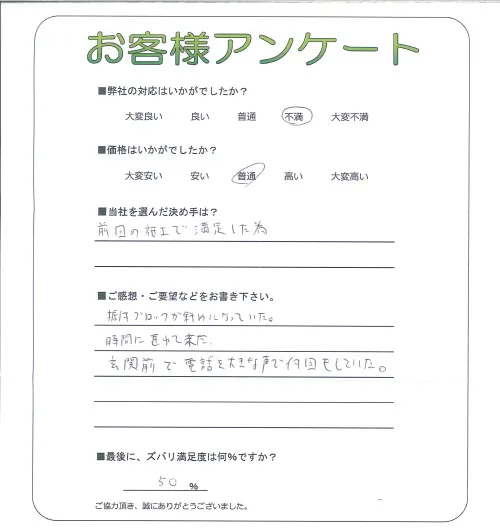 お客様アンケート
■弊社の対応はいかがでしたか?
大変良い 良い 普通 不満 大変不満
■価格はいかがでしたか?
大変安い 安い 普通 高い 大変高い
■当社を選んだ決め手は?
前回の施工で満足した為
■ご感想・ご要望などをお書き下さい。
ブロックが斜めになっていた。
時間に遅れて来た。
玄関前で電話を大きな声で何回もしていた。
■最後に、ズバリ満足度は何%ですか?
50 %
ご協力頂き、誠にありがとうございました。